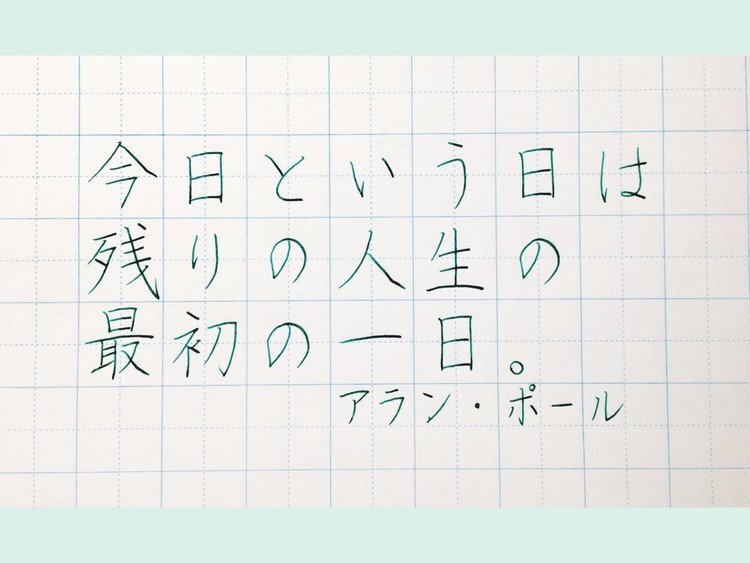 今日という日は
残りの人生の
最初の一日。
アラン・ポール